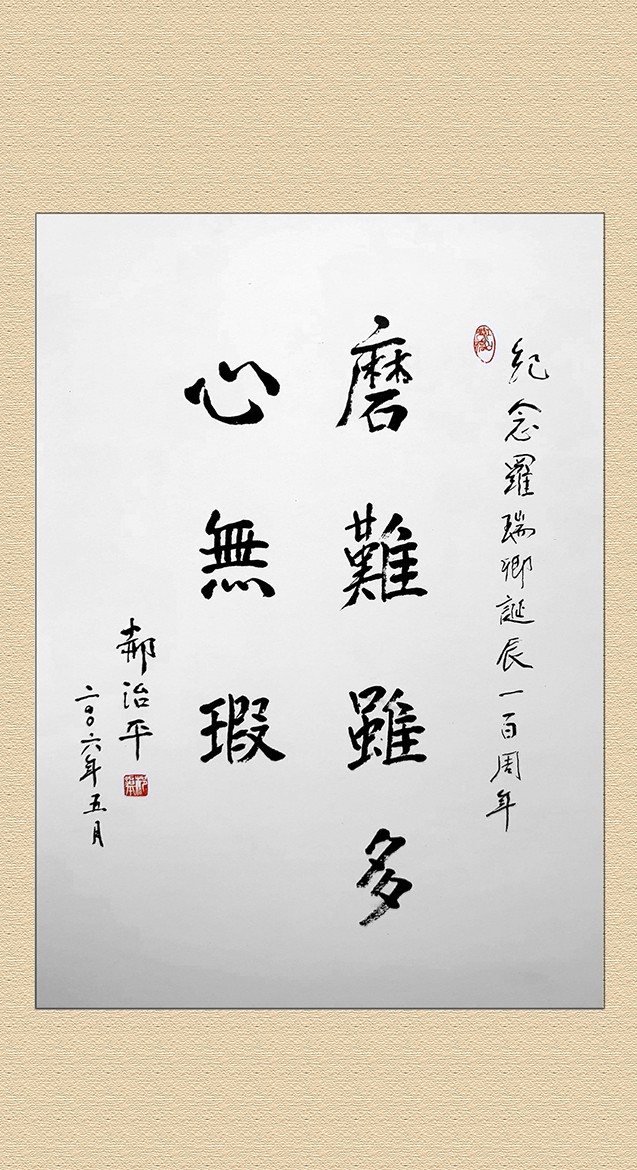 紀念羅瑞卿誕辰一百周年
磨難雖多
心無瑕
郝治平
二〇〇六年五月